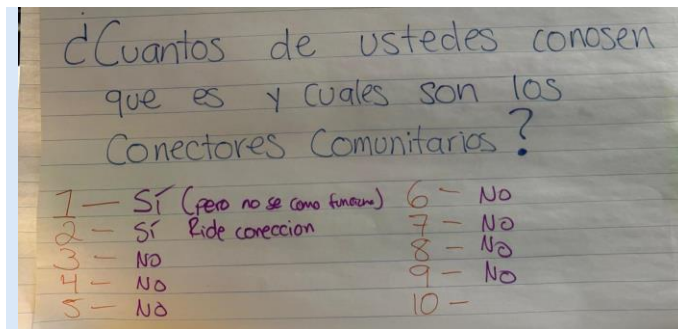 ¿Cuantos de ustedes conosen
que es y cuales son los
Conectores Comunitarios?
1 — SÍ (pero no se como funciona)
2 — Sí Ride coneccion
3 — NO
4 — NO
5 — NO
6 — NO
7 — NO
8 — NO
9 — NO
10 —